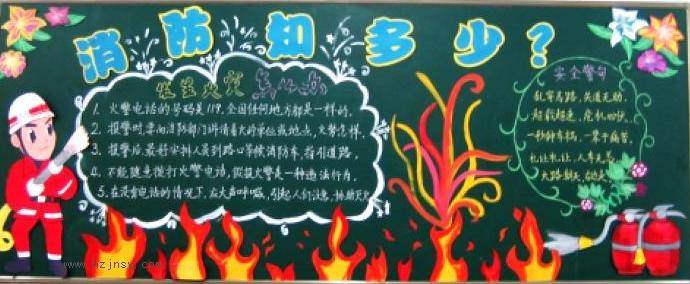 消防知多少?
发生火灾怎么办
1. 火警电话的号码是119,全国任何地方都是一样的。
2. 报警时要向消防部门讲清着火的单位或地点,火势怎样。
3. 报警后,最好安排人员到路口等候消防车,指引道路。
4. 不能随意拨打火警电话,假报火警是一种违法行为。
5. 在没有电话的情况下,应大声呼喊,引起人们注意,协助灭火
安全警句
乱穿马路,失道无助。
超载超速,危机四伏。
一秒钟车祸,一辈子痛苦。
礼让礼让,人车无恙。
大路朝天,